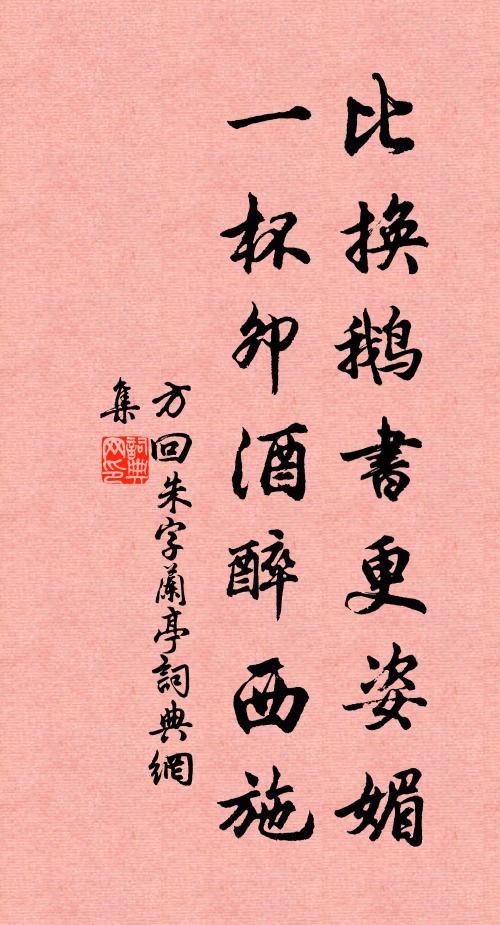 比換鵝書更姿媚
一杯卯酒醉西施
方回朱字蘭亭詞典網
集
詞典
網印